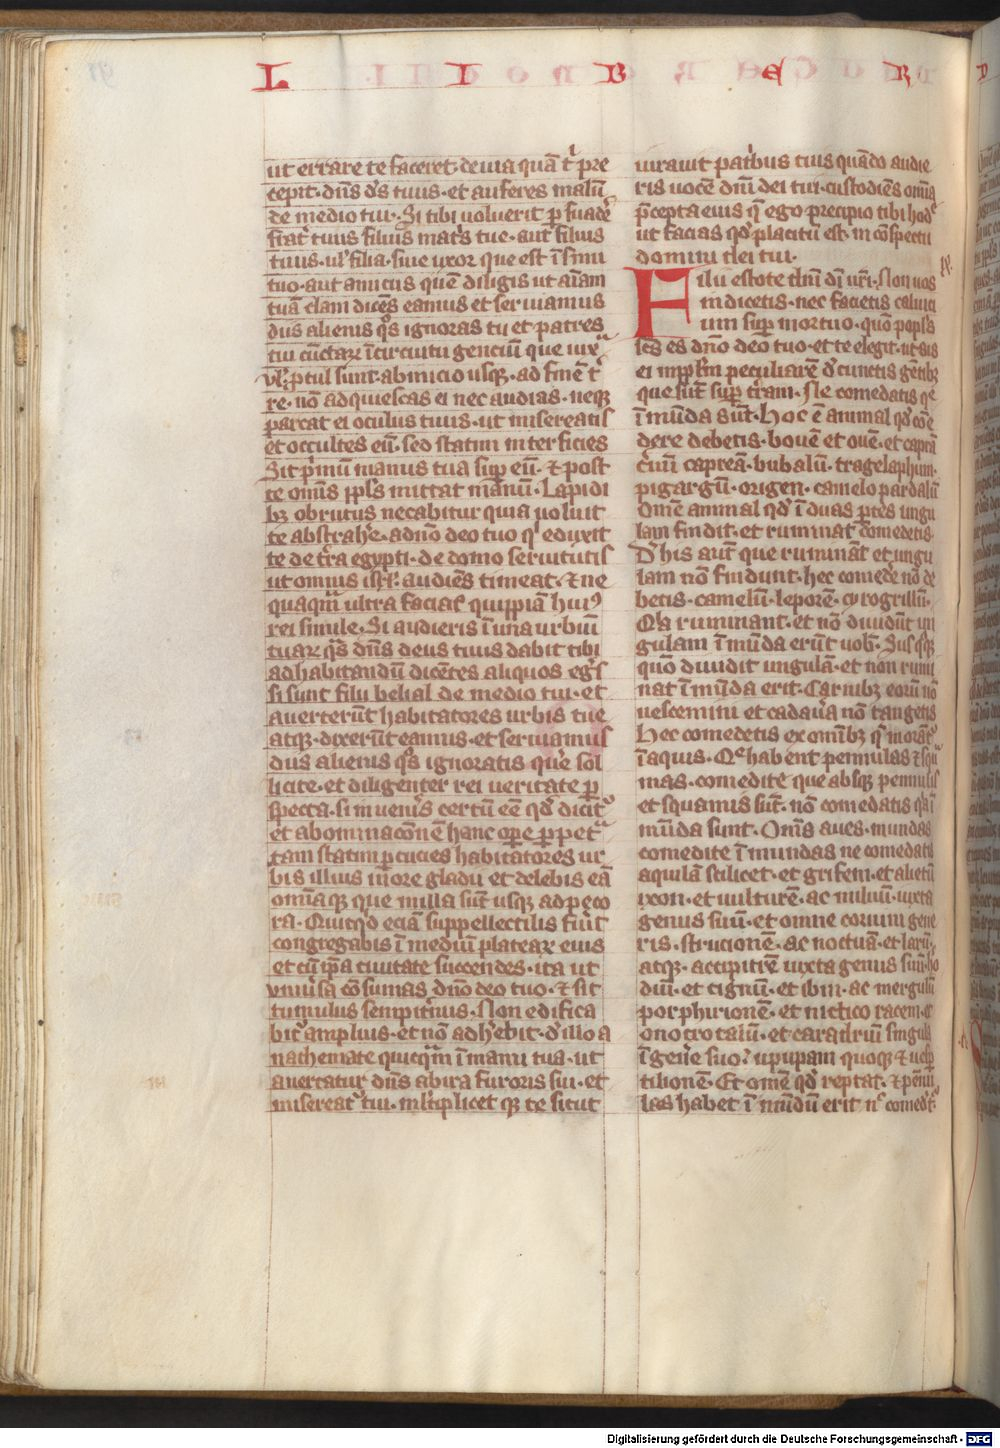 L I B E R
ut errare te faceret· de uia quā t͛ pre
cepit· dn̄s ds̄ tuus· et auferes malū
de medio tui· Si tibi uoluerit p̱suadē
frat͛ tuus filius mat͛s tue· aut filius
tuus· ul̓ filia· siue uxor que est ī sinu
tuo· aut amicus quē diligis ut aīam
tuā clam dicēs eamus et seruiamus
diis alienis q̄s ignoras tu et patres
tui cūctaꝝ ī circuitu genciū que iuxᵃ
ul̓ p̱cul sunt· ab inicio usqꝫ· ad finē t͛
re· nō adquiescas ei nec audias· neqꝫ
parcat ei oculus tuus· ut miserearis
et occultes eū· sed statim interficies
Sit p̓mū manus tua suꝑ eū· ⁊ post
te omīs ppl̓s mittat manū· Lapidi
bꝫ obrutus necabitur quia uoluit
te abstrah͛e· a dn̄o deo tuo q̓ eduxit
te de t͛ra egypti· de domo seruitutis
ut omnis isrl̓· audiēs timeat· ⁊ ne
quaqᵃm ultra faciat quippiā hui⁹
rei simile· Si audieris ī una urbiū
tuaꝝ q̄s dn̄s deus tuus dabit tibi
ad habitandū dicētes aliquos eg͛s
si sunt filii belial de medio tui· et
auerterūt habitatores urbis tue
atqꝫ· dixerūt eamus· et seruiamus
diis alienis q̄s ignoratis· quēre sol
licite· et diligenter rei ueritate ꝑ
specta· si inuenis͛ certū eē qd̄ dicit᷑
et abominacōnē hanc oꝑe ꝑpetᵃ
tam statim ꝑcucies habitatores ur
bis illius in ore gladii et delebis eā
omīaqꝫ que in illa sūt usqꝫ ad peco
ra· Quicqd̓ eciā suppellectilis fuīt
congregabis ī mediū plateaꝝ eius
et cū ip̄a ciuitate succendes· ita ut
uniūsa cōsumas· dn̄o deo tuo· ⁊ sit
tumulus sempit͛nus· Non edifica
bit᷑ amplius· et nō adhēbit· d͛ illo a
nathemate quicqᵃm ī manu tua· ut
auertatur dn̄s ab ira furoris sui· et
misereat᷑ tui· ml̓tiplicet qꝫ te sicut
iurauit pat͛ibus tuis quādo audie
ris uocē dn̄i dei tui· custodiēs om̄ia
p̄cepta eius q̄ ego precipio tibi hodᵉ
ut facias qd̄ placitū est· in cōspectu
domini dei tui·
Filii estote dn̄i di͛ ur͛i· Non uos
indicetis· nec facietis caluici
um suꝑ mortuo· quō popl̓s
scs es dn̄o deo tuo· et te elegit· ut sis
ei in ppl̓m peculiarē d͛ cunctis gētibꝫ
que sūt suꝑ t͛ram· Ne comedatis qᵉ
ī mūda sūt· Hoc ē animal qd̄ cōe
dere debetis· bouē et ouē· et caprā
c͛uū capreā· bubalū· tragelaphum·
pigargū· origen· camelo pardalū
Omē animal qd̄ ī duas p̱tes ungu
lam findit· et ruminat comedetis·
D͛ his aūt que rumināt et ungu
lam nō findunt· hec comedē nō de
betis· camelū· leporē· cyrogrillū·
Q̄a ruminant· et nō diuidūt un
gulam ī mūda erūt uob͛· Sus qꝫ
quō diuidit ungulā· et non rumi
nat ī mūda erit· Carnibꝫ eorū nō
uescemini et cadau͛a nō tangetis
Hec comedetis ex omībꝫ q̄ morāt᷑
ī aquis· Qᵉ habent pennulas ⁊ squᵃ
mas· comedite que absqꝫ pennulis
et squamis sūt· nō comedatis q̄a ī
mūda sunt· Om̄s aues· mundas
comedite ī mundas ne comedatis
aquilā scilicet· et grifem· et alietū
yxon· et uulturē· ac miluū· iuxta
genus suū· et omne coruini gene
ris· strucionē· ac noctuā· et larū·
atqꝫ· accipitrē iuxta genus suū· ho
diū· et cignū· et ibin· ac mergulū
porphirionē· et nicticoracem· et
onocrotalū· et caradriū singula
ī gen͛e suo· upupam quoqꝫ ⁊ uesꝑ
tilionē· Et omē qd̄ reptat· ⁊ pēnu
las habet ī mūdū erit n̄ comedet᷑